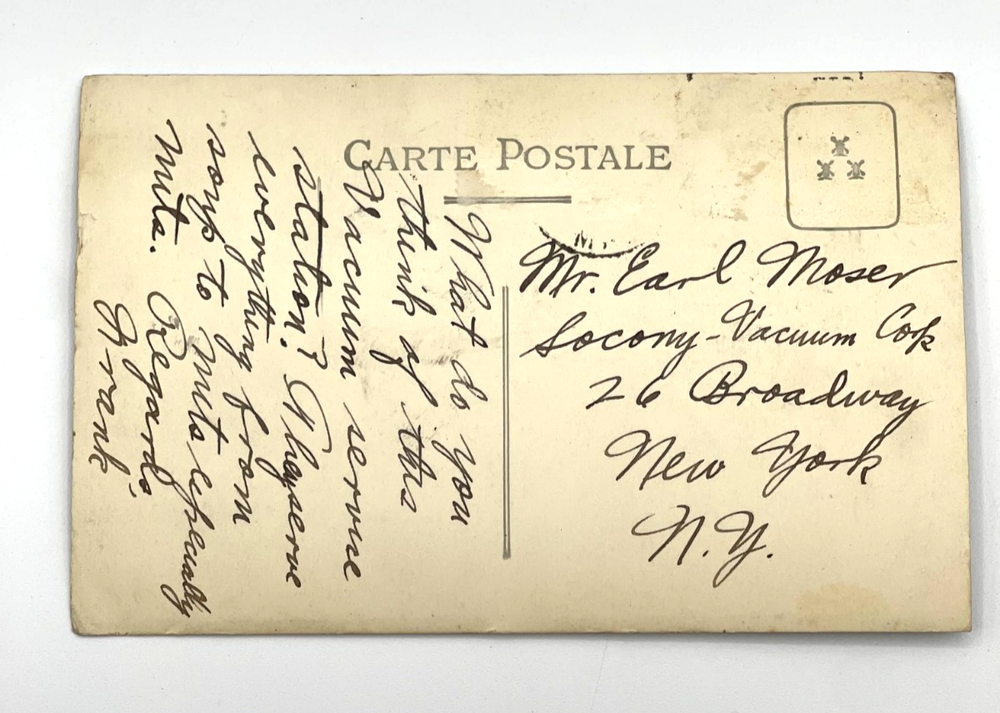 CARTE POSTALE
What do you
think of this
Vacuum service
station? They serve
everything from
soup to nuts especially
nuts. Regards
Frank
Mr. Earl Moser
Socony-Vacuum Corp
26 Broadway
New York
N.Y.